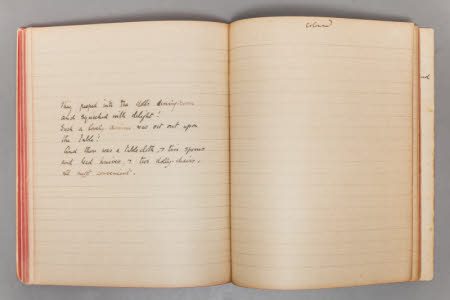 They peeped into the dolls dining-room
and squeaked with delight!
Such a lovely dinner was set out upon
the table!
And there was a tablecloth, & tin spoons
and lead knives, & two dolly-chairs -
all convenient.
coloured